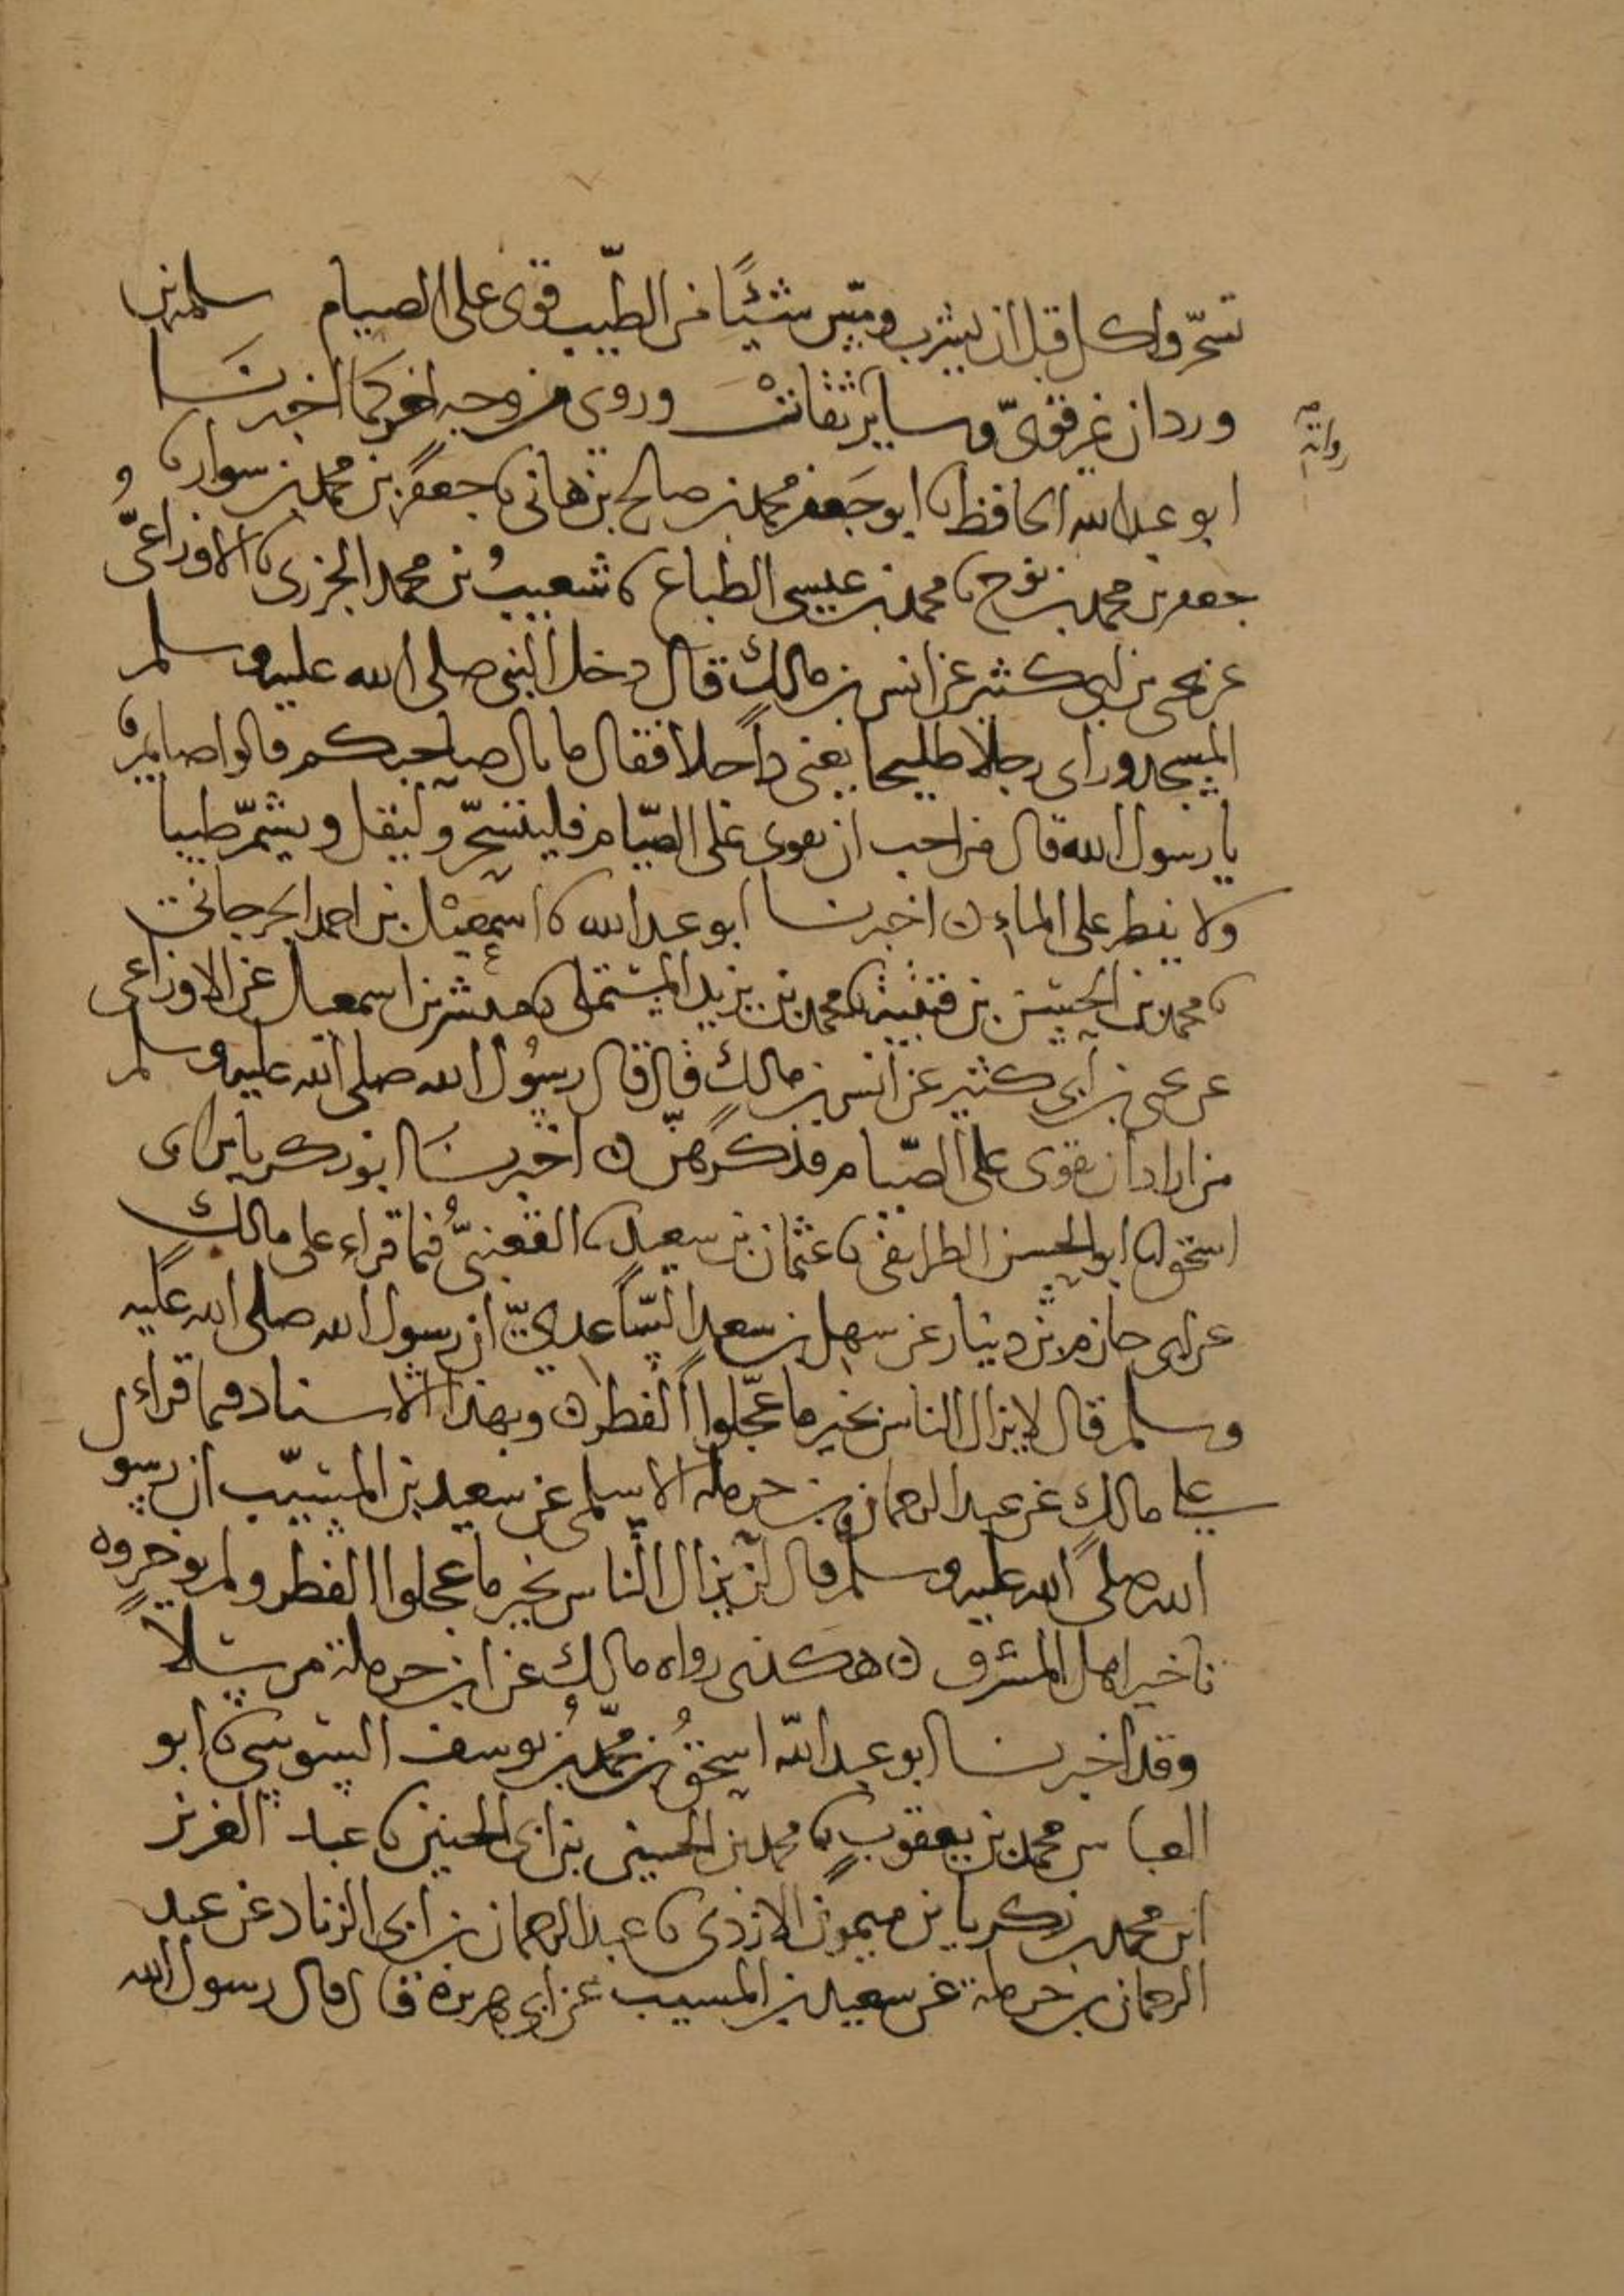 تسحر واكل قبل ان يشرب ومس شيئا من الطيب قوى على الصيام سلمة بن
وردان غير قوى وسائر ثقات وروى من وجه اخر كما اخبرنا
رواته
ابو عبد الله الحافظ نا ابو جعفر محمد بن صالح بن هانى نا جعفر بن محمد بن سوار نا و
جعفر بن محمد بن نوح نا محمد بن عيسى الطباع نا شعيب بن محمد الجزرى نا الاوزاعى
عن يحيى بن ابى كثير عن انس بن مالك قال دخل النبى صلى الله عليه وسلم
المسجد وراى رجلا طليحا يعنى ناحلا فقال ما بال صاحبكم قالوا صائم
يا رسول الله قال من احب ان يقوى على الصيام فليتسحر وليقل ويشم طيبا
ولا يفطر على الماء ن اخبرنا ابو عبد الله نا اسمعيل بن احمد الجرجانى
نا محمد بن الحسن بن قتيبة نا محمد بن يزيد المستملى نا مبشر بن اسمعيل عن الاوزاعى
عن يحيى بن ابى كثير عن انس بن مالك قال قال رسول الله صلى الله عليه وسلم
من اراد ان يقوى على الصيام فذكرهن ن اخبرنا ابو زكريا بن ابى
اسحق نا ابو الحسن الطرايفى نا عثمان بن سعيد نا القعنبى فيما قراء على مالك
عن ابى حازم بن دينار عن سهل بن سعد الساعدى ان رسول الله صلى الله عليه
وسلم قال لا يزال الناس بخير ما عجلوا الفطر ن وبهذا الاسناد فيما قراء
على مالك عن عبد الرحمان بن حرملة الاسلمى عن سعيد بن المسيب ان رسول
الله صلى الله عليه وسلم قال لن يزال الناس بخير ما عجلوا الفطر ولم يوخروه
تاخير اهل المشرق ن هكذى رواه مالك عن ابن حرملة مرسلا
وقد اخبرنا ابو عبد الله اسحق بن محمد بن يوسف السوسى نا ابو
العباس محمد بن يعقوب نا محمد بن الحسين بن ابى الحنين نا عبد العزيز
ابن محمد بن زكريا بن ميمون الازدى نا عبد الرحمان بن ابى الزناد عن عبد
الرحمان بن حرملة عن سعيد بن المسيب عن ابى هريرة قال قال رسول الله